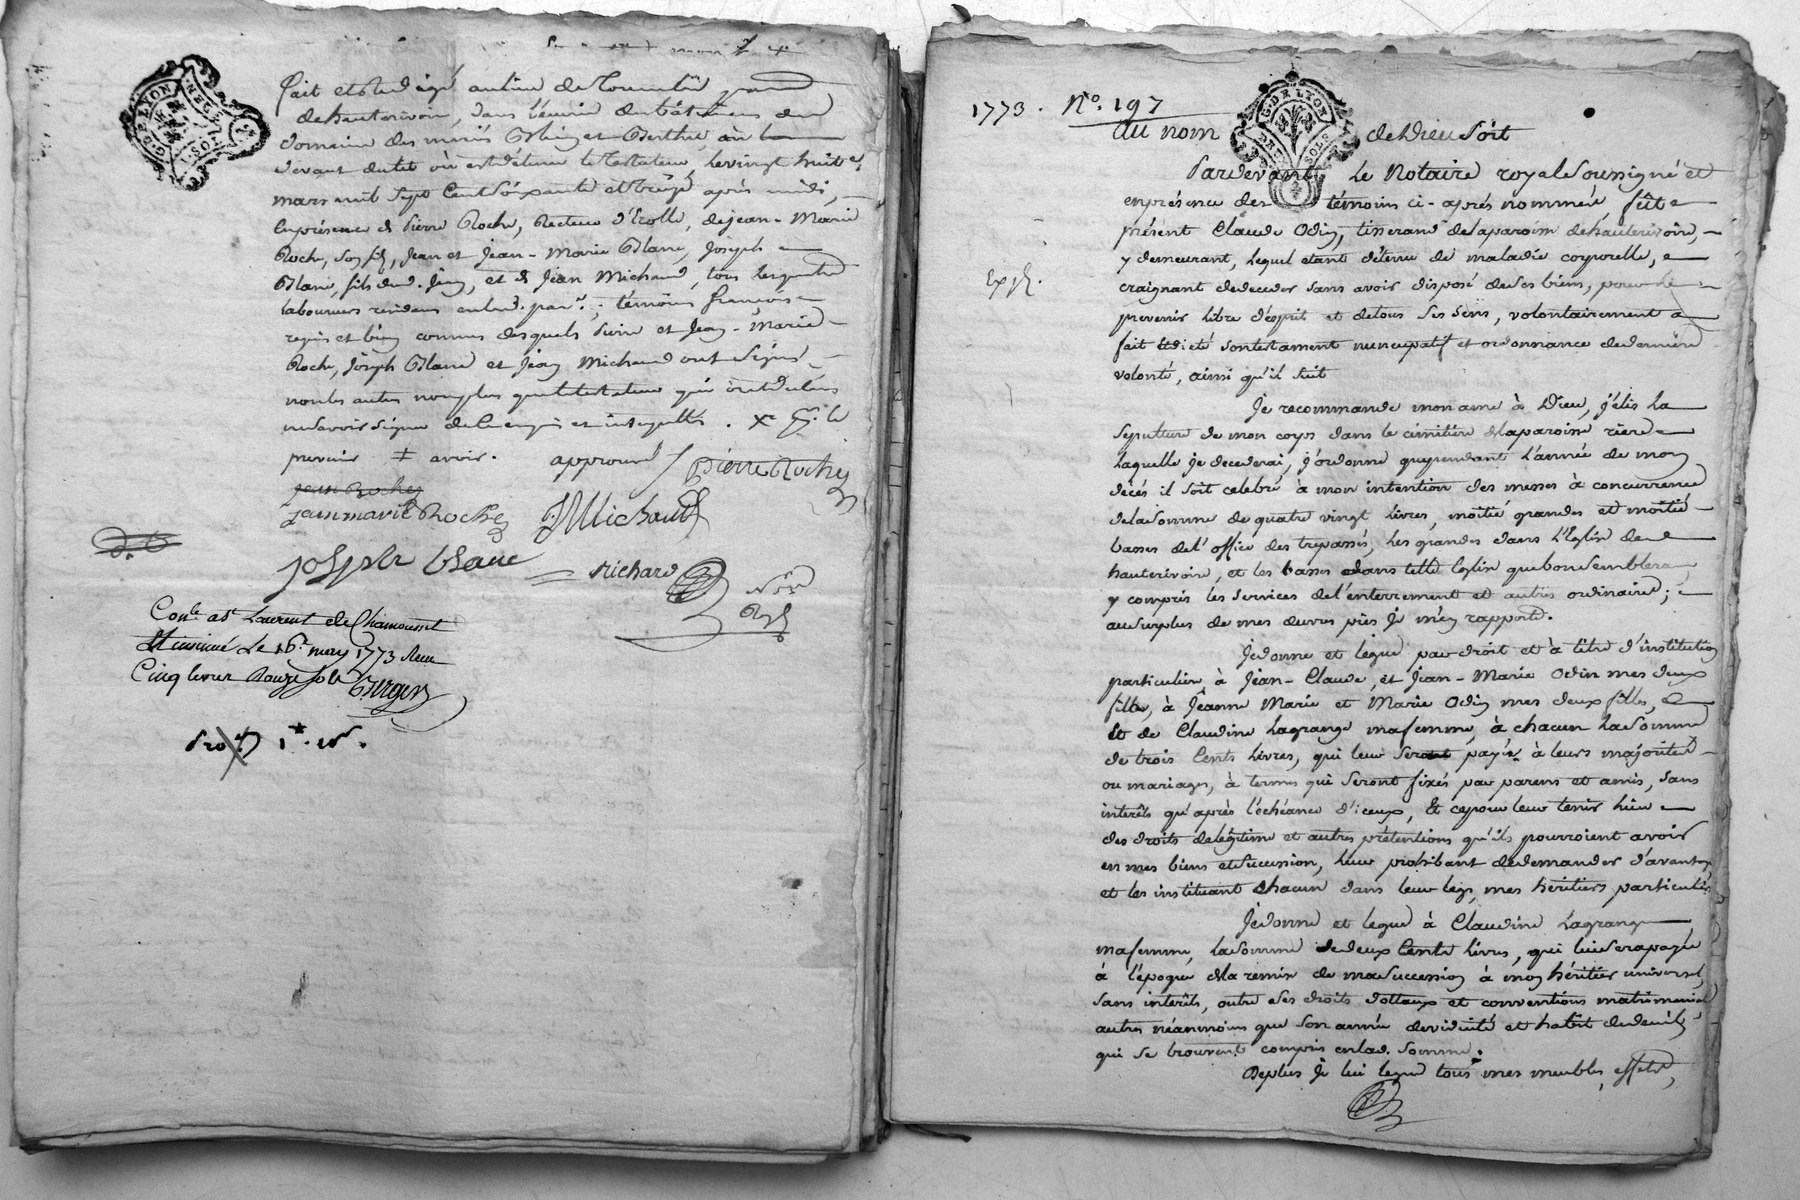 G. DE LYON
fait et rédigé au lieu de
de hauterivoire, dans l'écurie du bâtiment du
domaine des mariés et Berthet, au
devant du lit où est détenu le testateur, le vingt huit e.
mars mil sept cent soixante et treize après midi,
En présence de Pierre Roche, Recteur d'Ecolle, de jean-Marie
Roche, son fils, Jean et Jean-Marie Blanc, Joseph
Blanc, fils dud. Jean, et de Jean Michaud, tous
laboureurs résidens en lad. par.se; témoins
requis et bien connus desquels Pierre et Jean-Marie
Roche, Joseph Blanc et Jean Michaud ont signé
non les autres non plus que le testateur qui ont déclaré
ne savoir signer de ce enquis et interpellés.
avoir. approuvé Pierre Roche
jean marie Roche J Michaud
joseph blanc Richard
Con.le a St Laurent de Chamousset
Le 1773 Reçu
Cinq livres douze sols Berger
1773. N.o 197
G. DE LYON
au nom de Dieu soit
Pardevant le Notaire royal soussigné et
en présence des témoins ci-après nommés fût
présent Claude Odin, tisserand de la paroisse de hauterivoire,
y demeurant, lequel étant détenu de maladie corporelle,
craignant de deceder sans avoir disposé de ses biens, pour le
prevenir libre d'esprit et de tous ses sens, volontairement a
fait et dicté son testament nuncupatif et ordonnance de dernière
volonté, ainsi qu'il suit
Je recommande mon ame à Dieu, j'élis la
sepulture de mon corps dans le cimitière de la paroisse rière
laquelle je decederai, j'ordonne que pendant l'année de mon
décès il soit celebré à mon intention des messes à concurrence
de la somme de quatre vingt livres, moitié grandes et moitié
basses de l'office des trepassés, les grandes dans l'Eglise de
hauterivoire, et les basses dans telle Eglise que bon semblera,
y compris les services de l'enterrement et autres ordinaires;
au surplus de mes œuvres pies je m'en rapporte.
Je donne et legue par droit et à titre d'institution
particulière à Jean-Claude, et Jean-Marie Odin mes deux
fils, à Jeanne Marie et Marie Odin mes deux filles, &
et de Claudine Lagrange ma femme, à chacun la somme
de trois Cents livres, qui leur sera payée à leurs majorités
ou mariages, à termes qui seront fixés par parens et amis, sans
interêts qu'après l'échéance d'iceux, Et ce pour leur tenir lieu
des droits de légitime et autres prétentions qu'ils pourroient avoir
en mes biens et succession, leur prohibant de demander d'avantage
et les instituant chacun dans leur legs, mes héritiers particuliers
Je donne et legue à Claudine Lagrange
ma femme, la somme de deux Cents livres, qui lui sera payée
à l'époque de la remise de ma succession à mon héritier universel,
sans interêts, outre ses droits dottaux et conventions matrimoniales
autres néanmoins que son année de viduité et habit de deuil,
qui se trouvent compris en lad. somme.
De plus je lui legue tous mes meubles, effets,